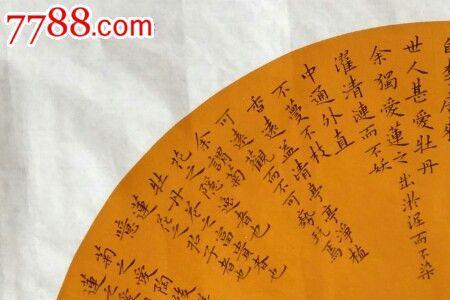 世人甚愛牡丹
余獨愛蓮之出淤泥而不染
濯清漣而不妖
中通外直
不蔓不枝
香遠益清亭亭淨植
可遠觀而不可褻玩焉
余謂菊
花之隱逸者也
牡丹花之富貴者也
蓮花之君子者也
噫
菊之愛陶後
蓮之愛
7788.com